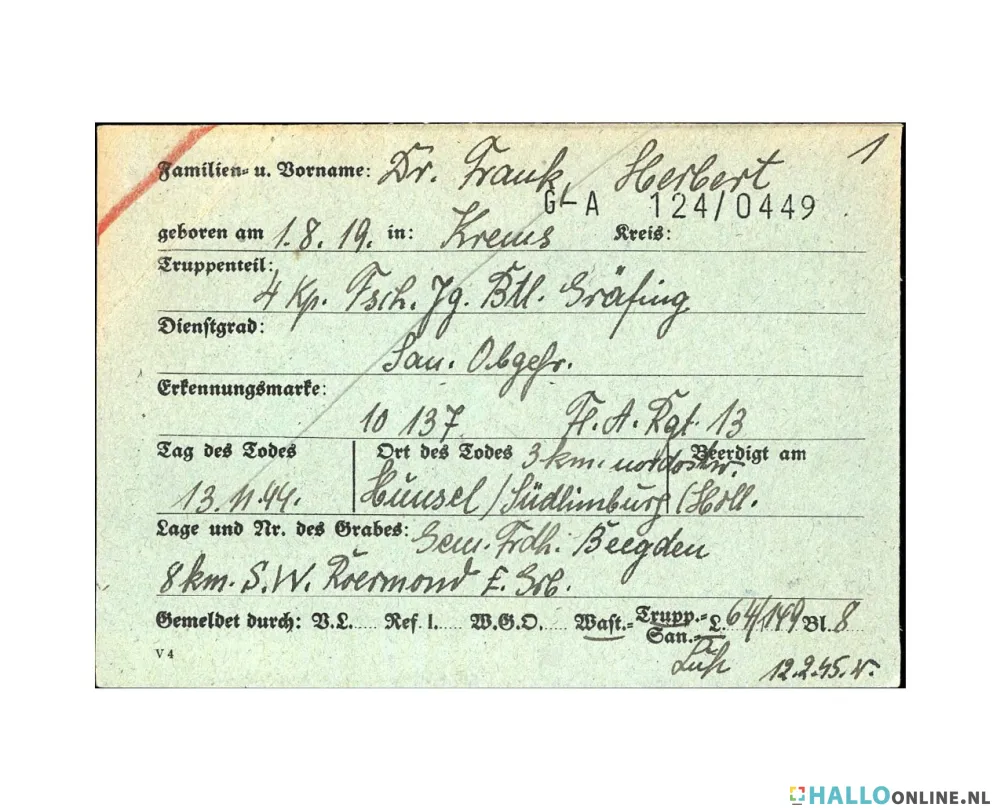 1
Familien= u. Vorname: Dr. Frank, Herbert
G-A 124/0449
geboren am 1.8.19. in: Krems Kreis:
Truppenteil:
4 Kp. Fsch. Jg. Btl. Gräfing
Dienstgrad:
San. Obgefr.
Erkennungsmarke:
10 137 Fl. A. Rgt. 13
Tag des Todes Ort des Todes 3 km. nordostw. Beerdigt am
13.11.44. Hunsel /Südlimburg /Holl.
Lage und Nr. des Grabes: Gem. Frdh. Beegden
8 km. S.W. Roermond E. Grb.
Gemeldet durch: V.L. Ref. I. W.G.O. Wast.= Trupp.= L. 64/149 Bl. 8
San.=
V 4
12.2.45.
HALLOONLINE.NL